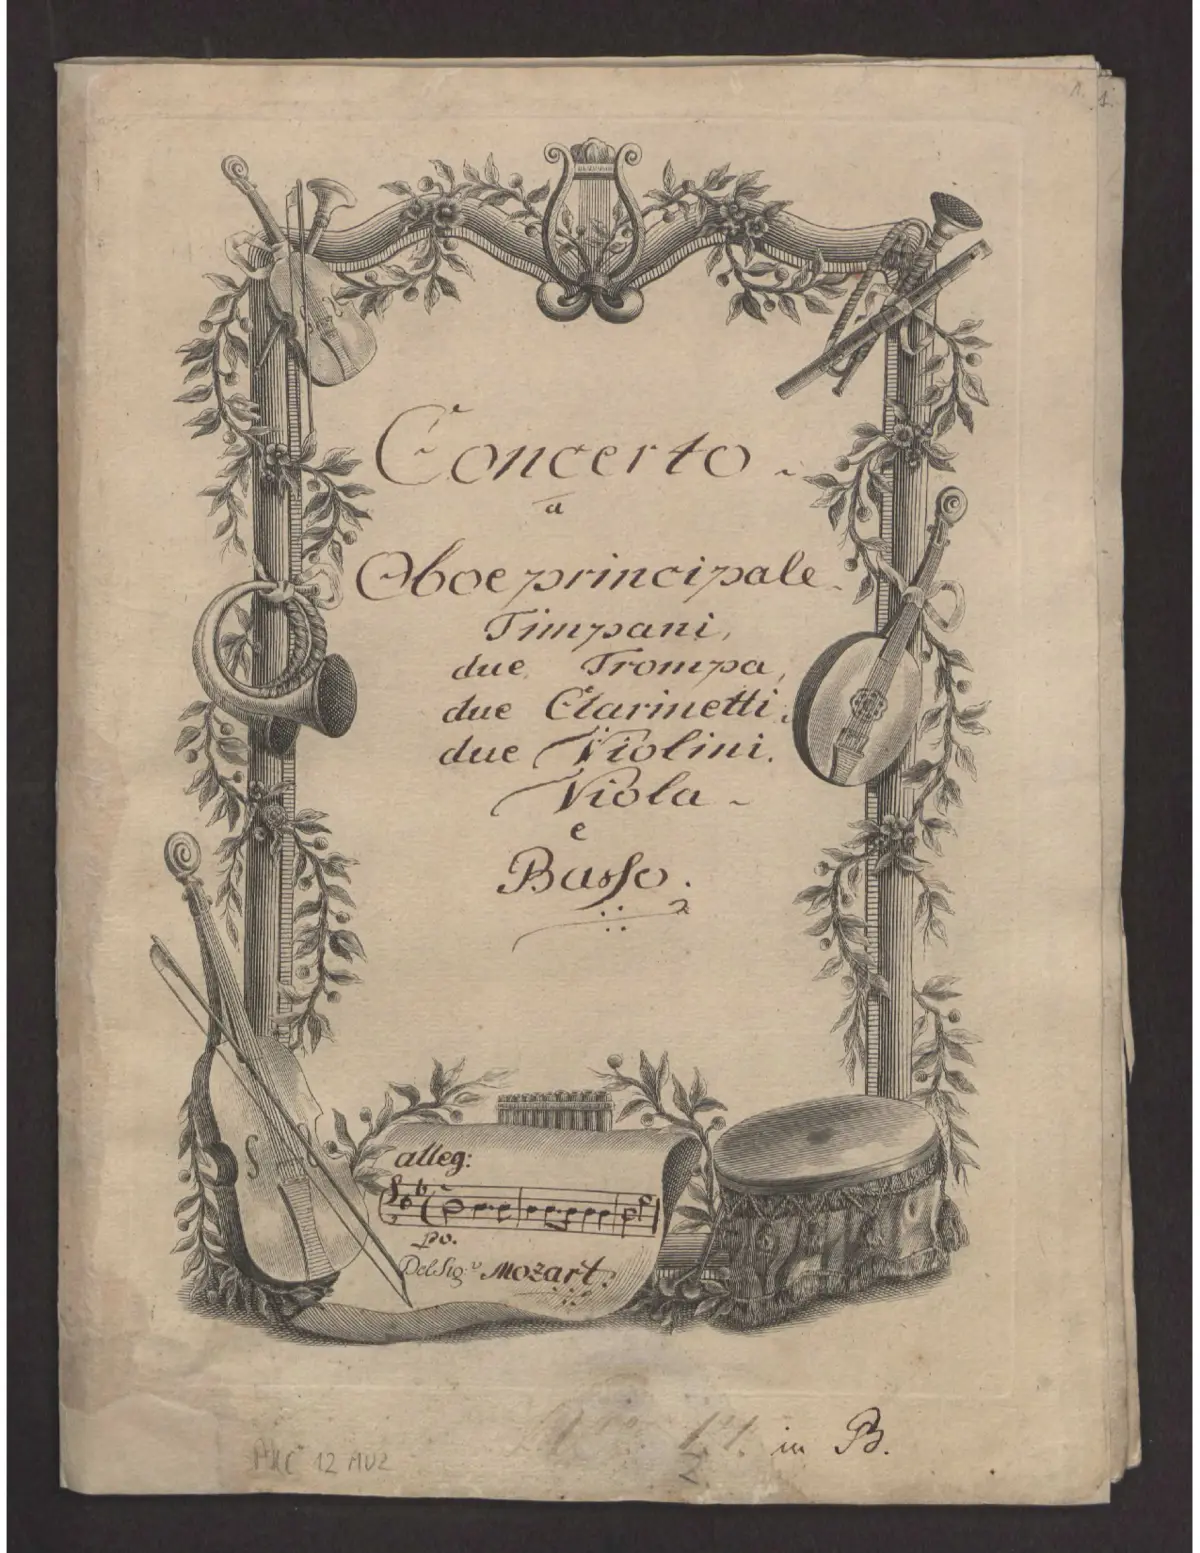 1.
Concerto ~
a
Oboe principale.
Timpani,
due Trompa,
due Clarinetti,
due Violini.
Viola ~
e
Basso.
alleg:
po.
Del Sig:r Mozart.
in B.
12 MUZ